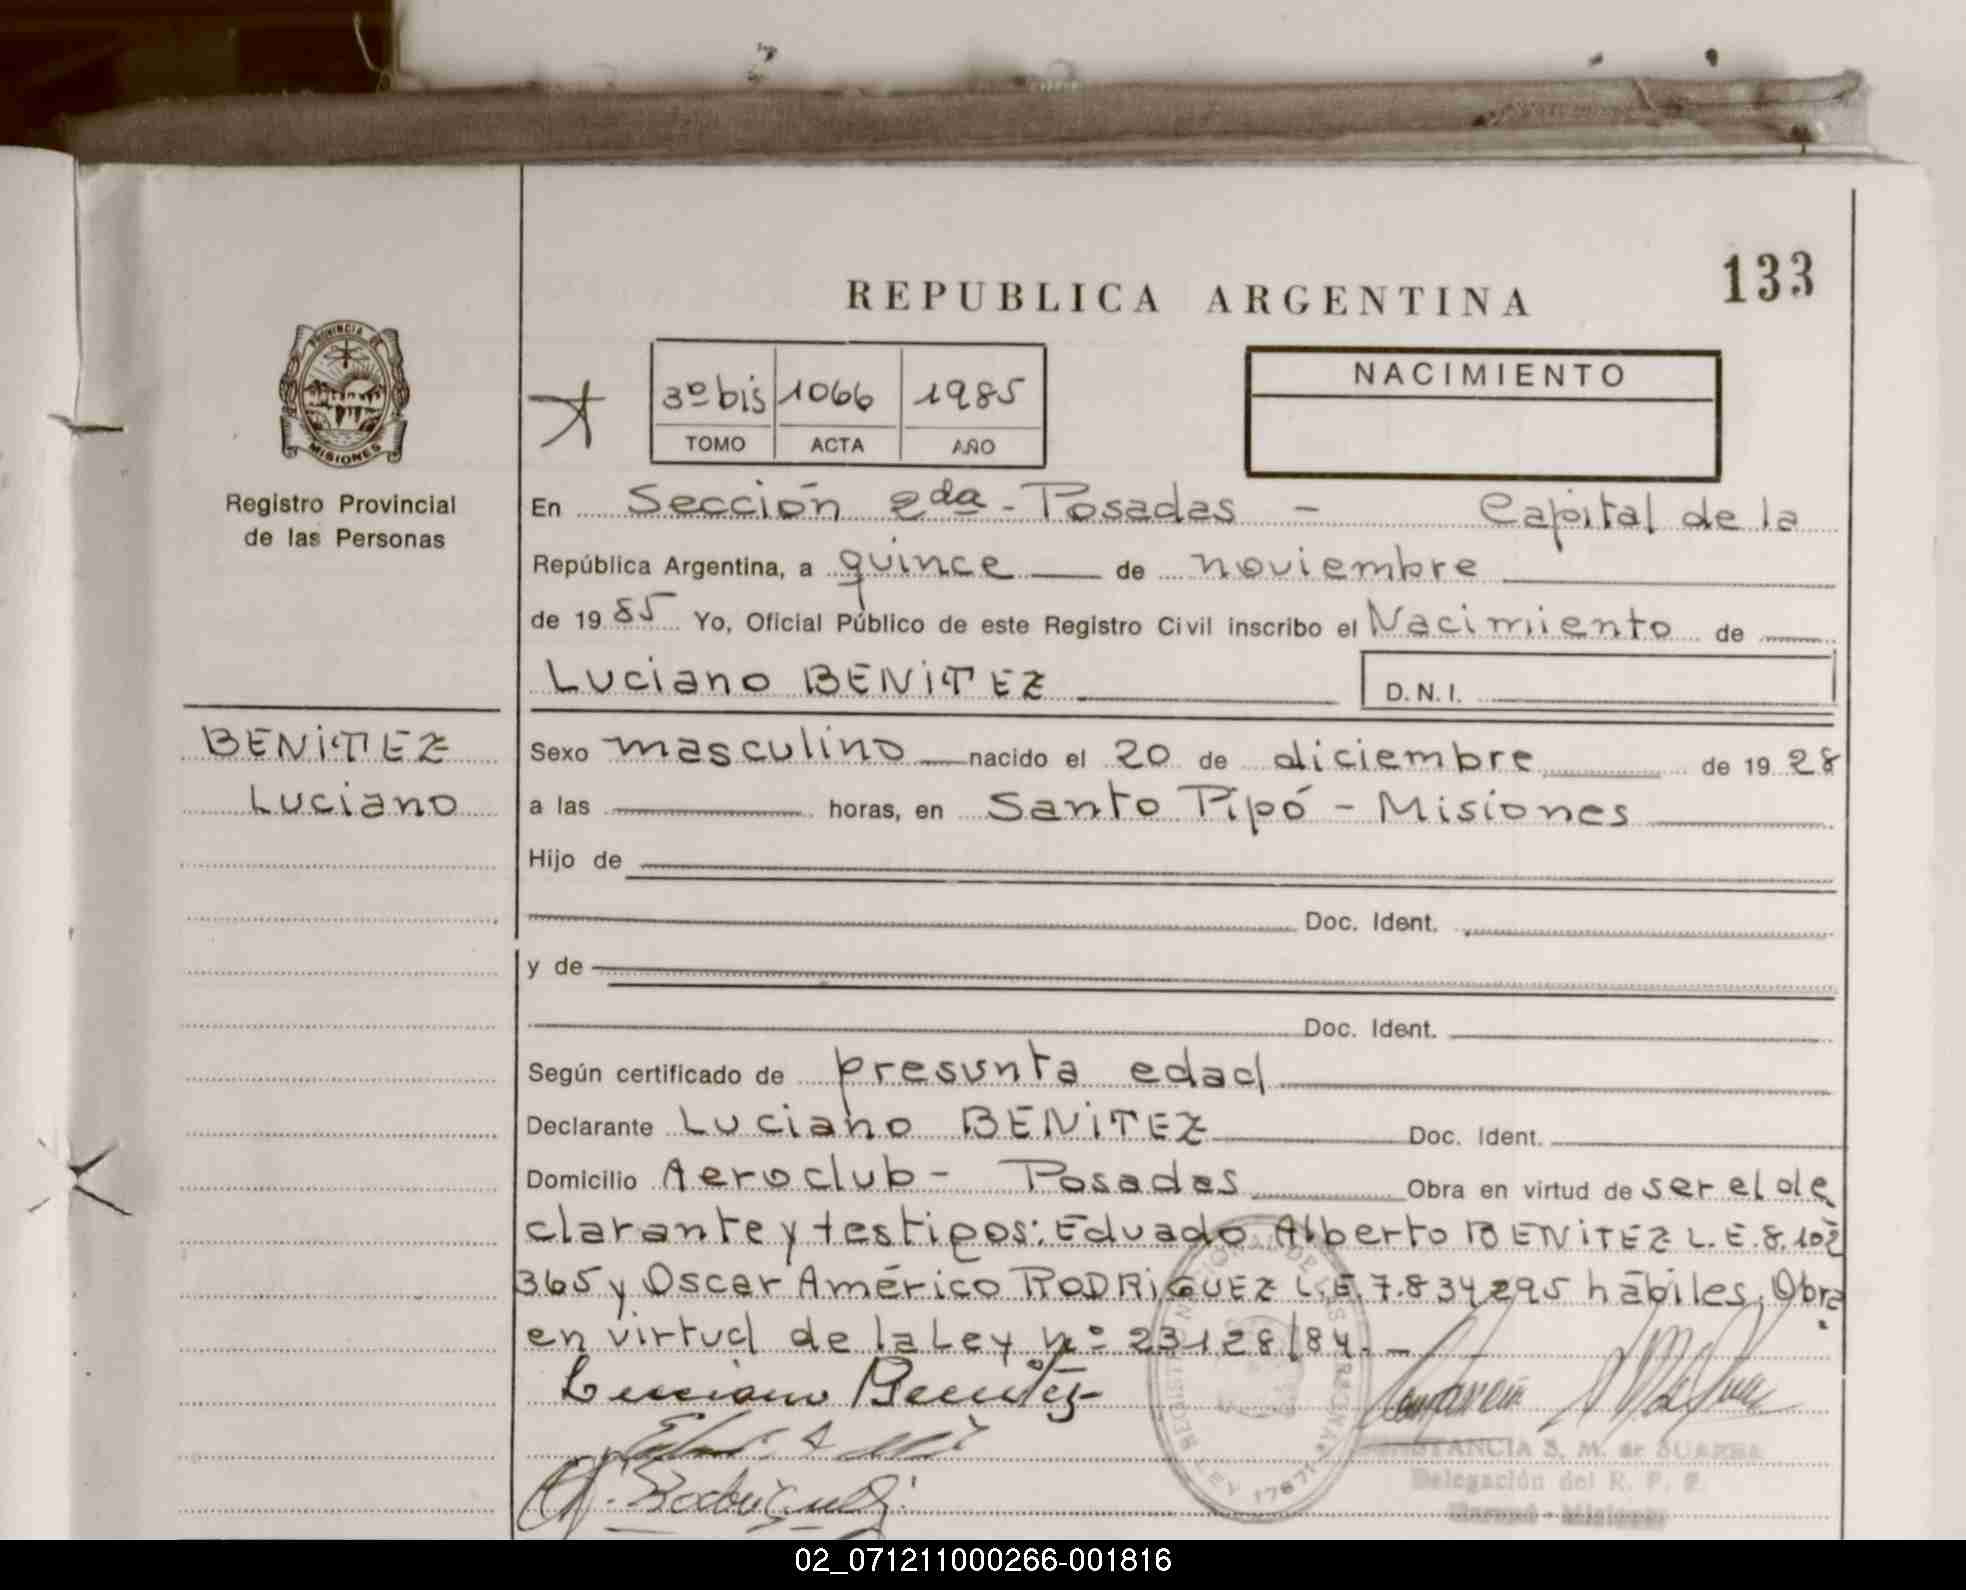 133
REPUBLICA ARGENTINA
PROVINCIA DE
MISIONES
Registro Provincial
de las Personas
3º bis 1066 1985
TOMO ACTA AÑO
NACIMIENTO
En Sección 2da - Posadas - Capital de la
República Argentina, a quince de noviembre
de 1985 Yo, Oficial Público de este Registro Civil inscribo el Nacimiento de
Luciano BENITEZ D.N.I.
BENITEZ
Luciano
Sexo masculino nacido el 20 de diciembre de 1928
a las horas, en Santo Pipó - Misiones
Hijo de
Doc. Ident.
y de
Doc. Ident.
Según certificado de presunta edad
Declarante Luciano BENITEZ Doc. Ident.
Domicilio Aeroclub - Posadas Obra en virtud de ser el de
clarante y testigos: Eduado Alberto BENITEZ L.E. 8.102
365 y Oscar Américo RODRIGUEZ L.E. 7.834295 hábiles. Obra
en virtud de la Ley nº 23128/84. -
Luciano Benitez
Rodriguez
S. M. de SUAREZ
Delegación del R. P. P.
02_071211000266-001816